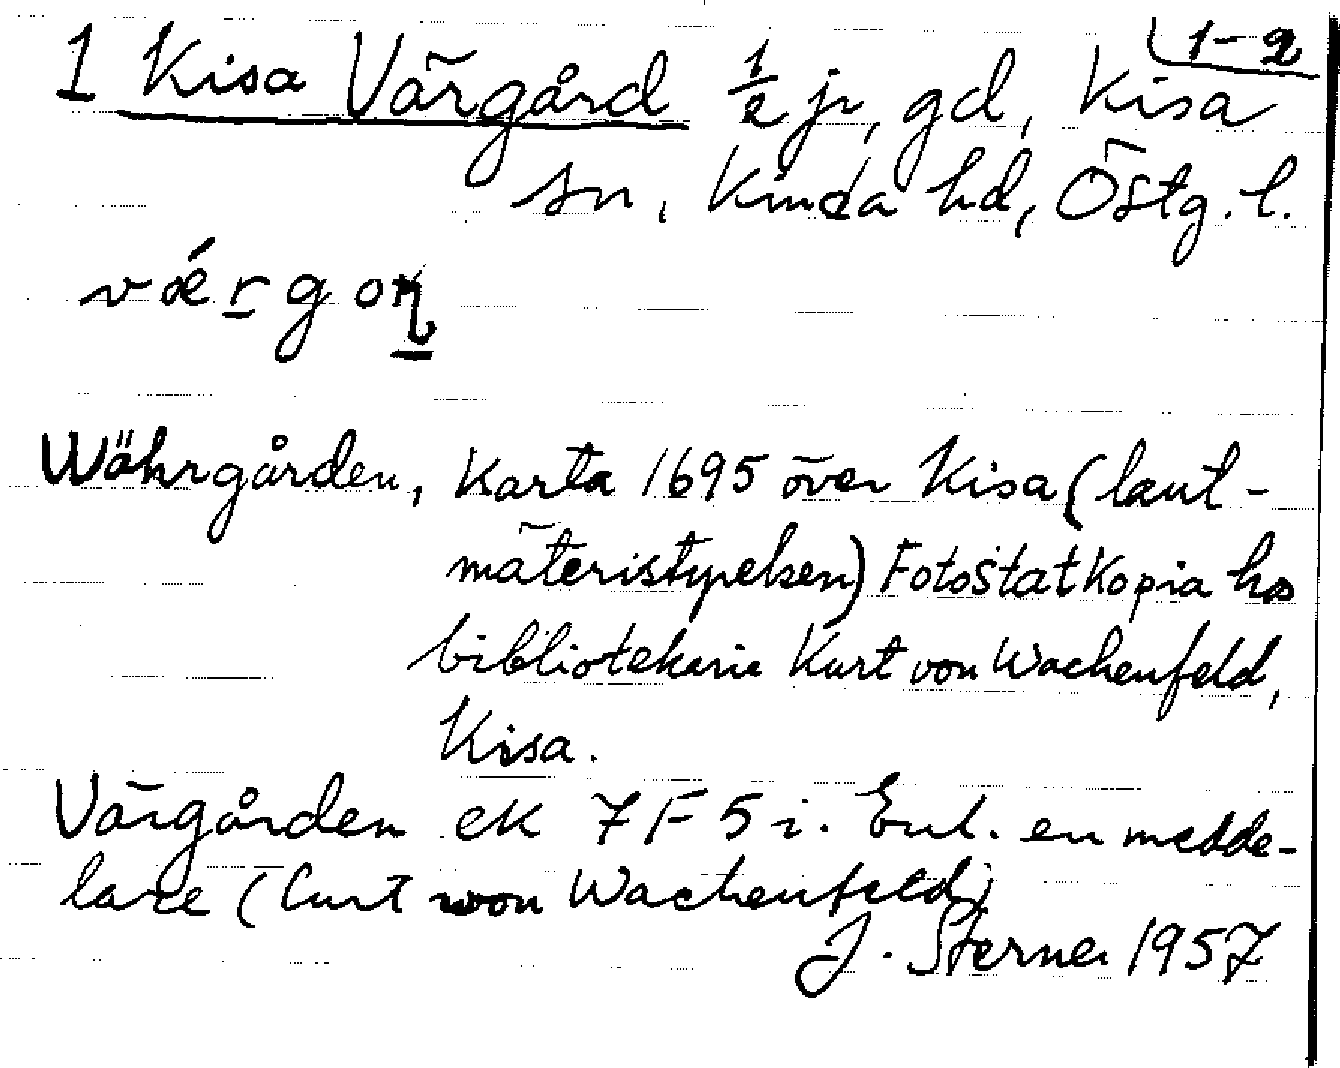 1-2
1 Kisa Värgård 1/2 jr, gd, Kisa
sn, Kinda hd, Östg. l.
vǽrgoṇ
Währgården, Karta 1695 över Kisa (lant-
mäteristyrelsen) Fotostatkopia hos
bibliotekarie Kurt von Wachenfeld,
Kisa.
Värgården ek 7 F 5 i. Enl. en medde-
lare (Curt von Wachenfeld)
J. Sterner 1957